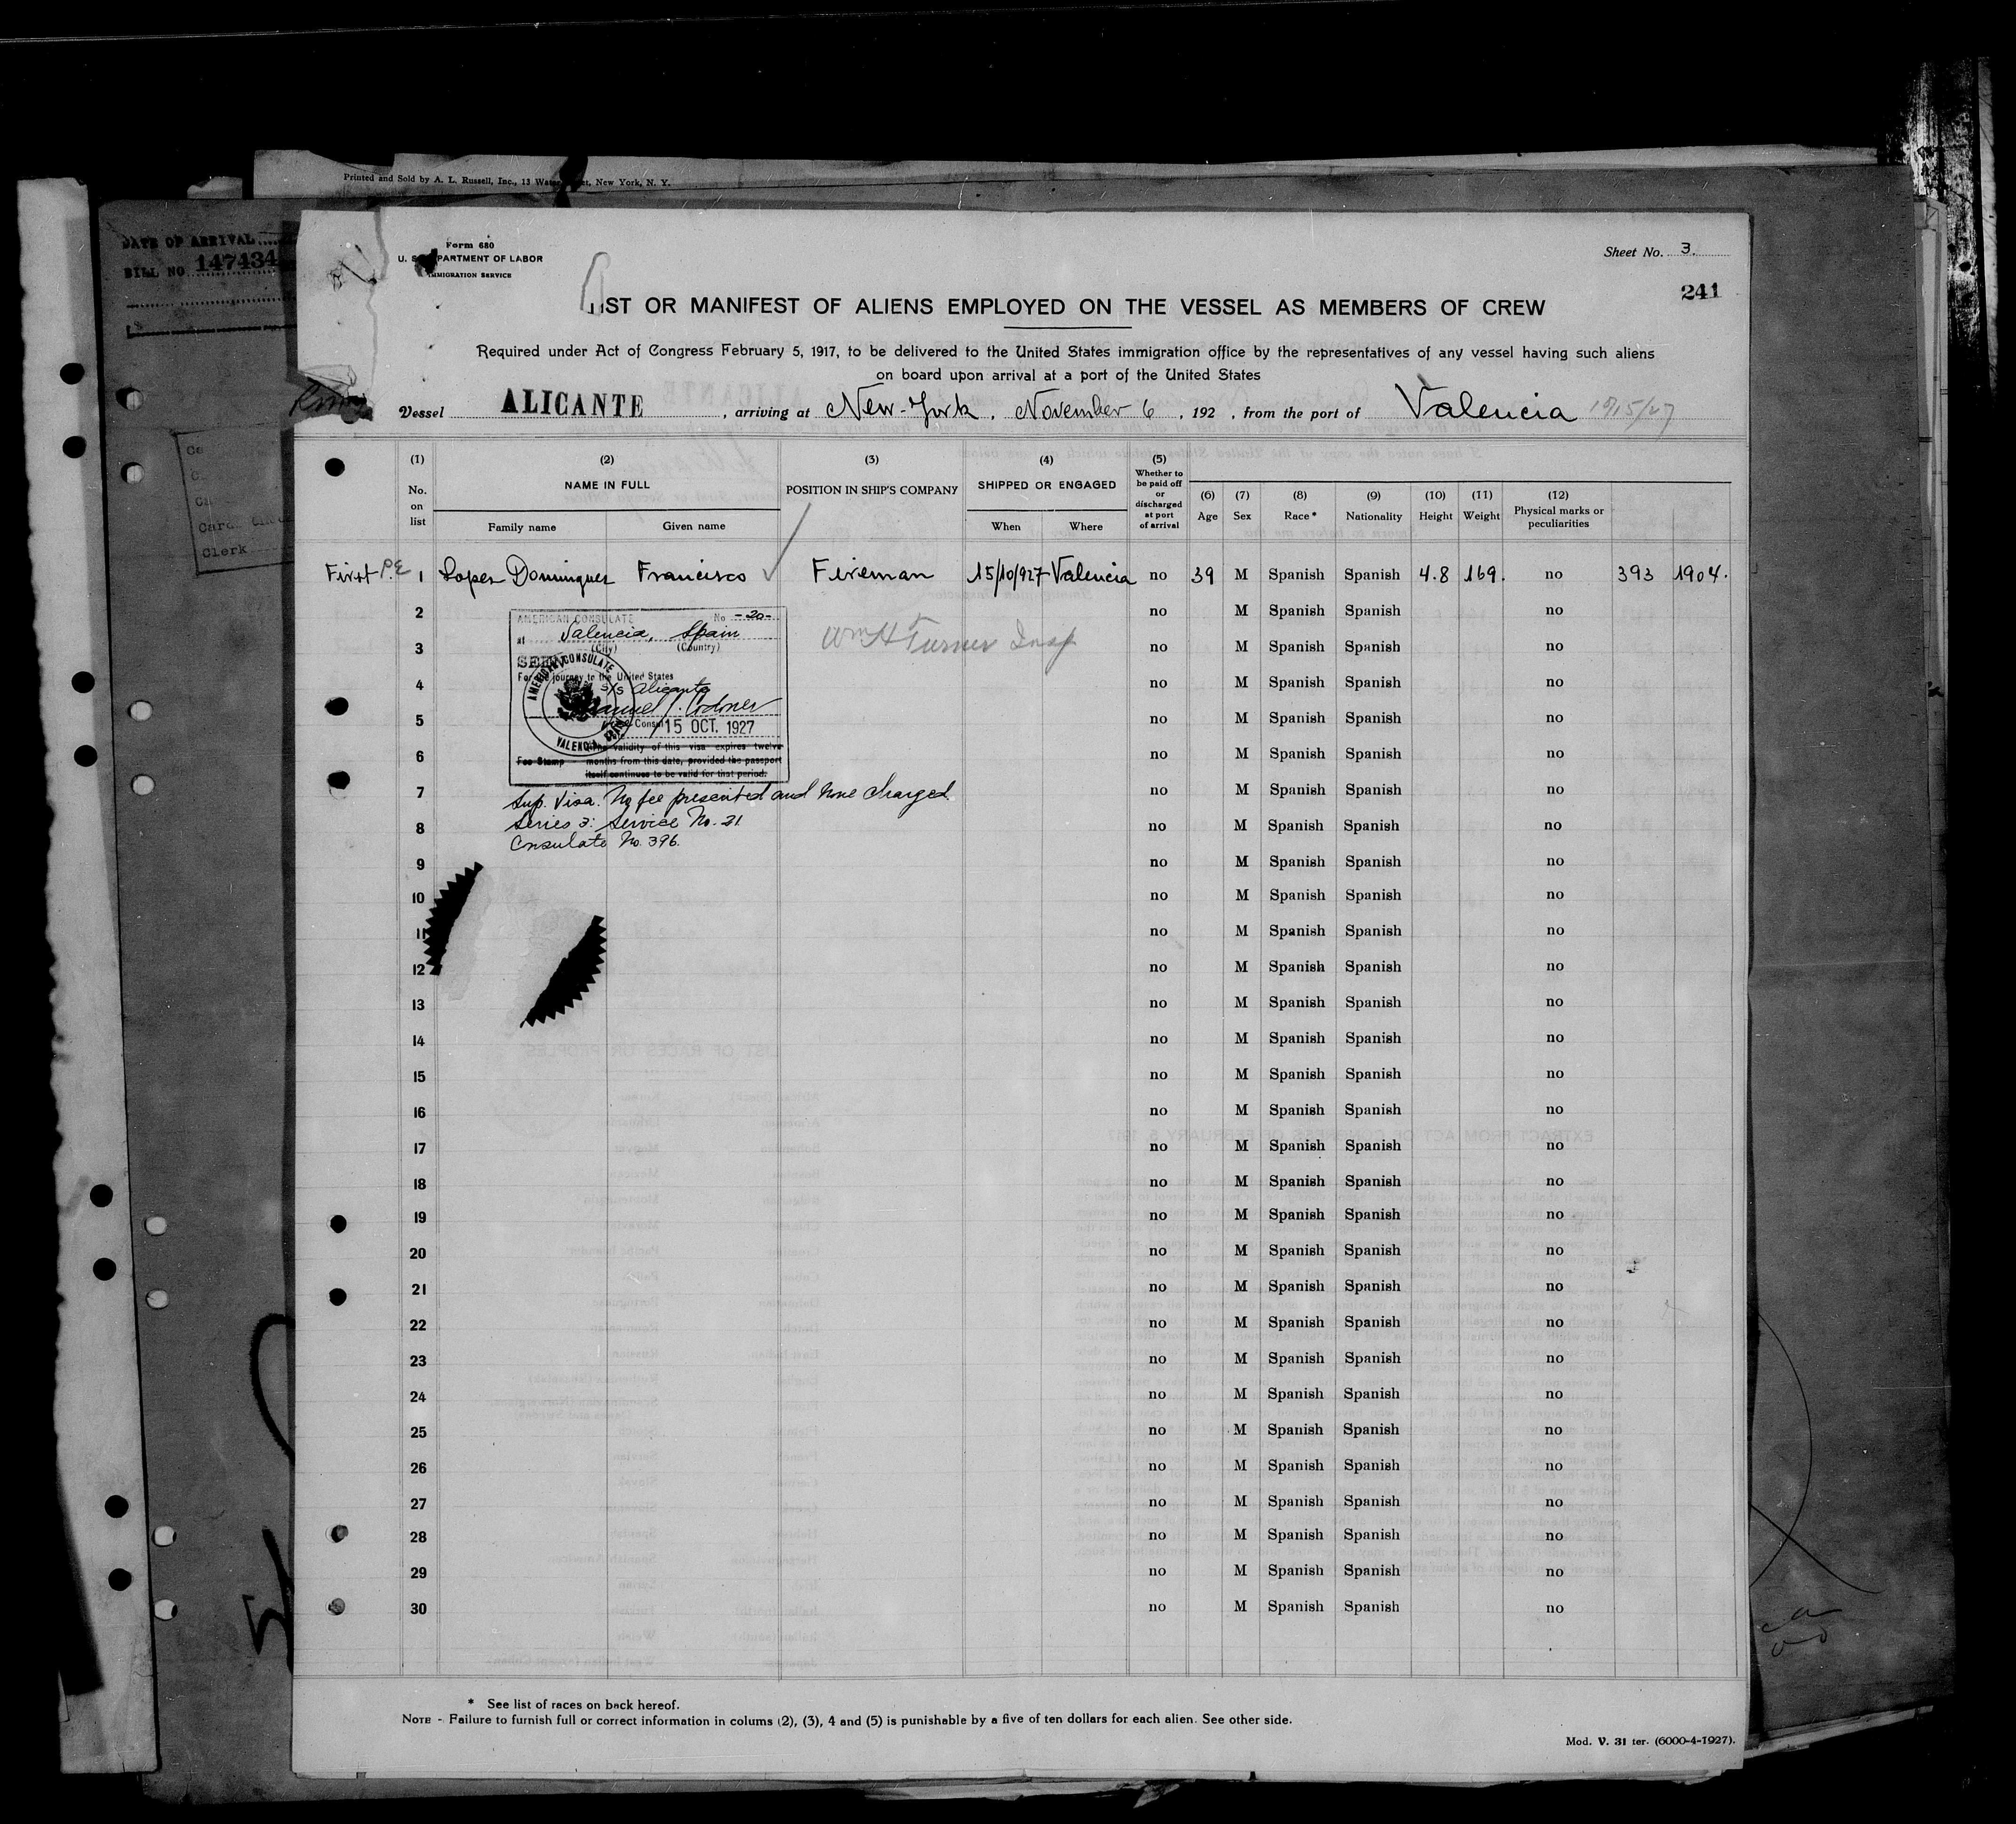 Printed and Sold by A. L. Russell, Inc., 13 Water Street, New York, N. Y.
DATE OF ARRIVAL
BILL NO 147434
Clerk
Form 680
U. S. DEPARTMENT OF LABOR
IMMIGRATION SERVICE
Sheet No. 3.
241
LIST OR MANIFEST OF ALIENS EMPLOYED ON THE VESSEL AS MEMBERS OF CREW
Required under Act of Congress February 5, 1917, to be delivered to the United States immigration office by the representatives of any vessel having such aliens
on board upon arrival at a port of the United States
Vessel ALICANTE , arriving at New-York . November 6 , 192 , from the port of Valencia 10/15/27
(1) No. on list
(2) NAME IN FULL Family name Given name
(3) POSITION IN SHIP'S COMPANY
(4) SHIPPED OR ENGAGED When Where
(5) Whether to be paid off or discharged at port of arrival
(6) Age
(7) Sex
(8) Race *
(9) Nationality
(10) Height
(11) Weight
(12) Physical marks or peculiarities
First P.E 1 Lopez Dominguez Francisco Fireman 15/10/927 Valencia no 39 M Spanish Spanish 4.8 169. no 393 1904.
2 no M Spanish Spanish no
3 no M Spanish Spanish no
4 no M Spanish Spanish no
5 no M Spanish Spanish no
6 no M Spanish Spanish no
7 no M Spanish Spanish no
8 no M Spanish Spanish no
9 no M Spanish Spanish no
10 no M Spanish Spanish no
11 no M Spanish Spanish no
12 no M Spanish Spanish no
13 no M Spanish Spanish no
14 no M Spanish Spanish no
15 no M Spanish Spanish no
16 no M Spanish Spanish no
17 no M Spanish Spanish no
18 no M Spanish Spanish no
19 no M Spanish Spanish no
20 no M Spanish Spanish no
21 no M Spanish Spanish no
22 no M Spanish Spanish no
23 no M Spanish Spanish no
24 no M Spanish Spanish no
25 no M Spanish Spanish no
26 no M Spanish Spanish no
27 no M Spanish Spanish no
28 no M Spanish Spanish no
29 no M Spanish Spanish no
30 no M Spanish Spanish no
AMERICAN CONSULATE No -20-
at Valencia, Spain
(City) (Country)
SEEN
For the journey to the United States
S/s Alicante
Consul
15 OCT. 1927
AMERICAN CONSULATE
VALENCIA, SPAIN
The validity of this visa expires twelve
Fee Stamp months from this date, provided the passport
itself continues to be valid for that period.
Wm H Turner Insp
Sup. Visa. No fee presented and none charged.
Series 3: Service No. 31
Consulate No. 396.
* See list of races on back hereof.
NOTE - Failure to furnish full or correct information in colums (2), (3), 4 and (5) is punishable by a five of ten dollars for each alien. See other side.
Mod. V. 31 ter. (6000-4-1927).